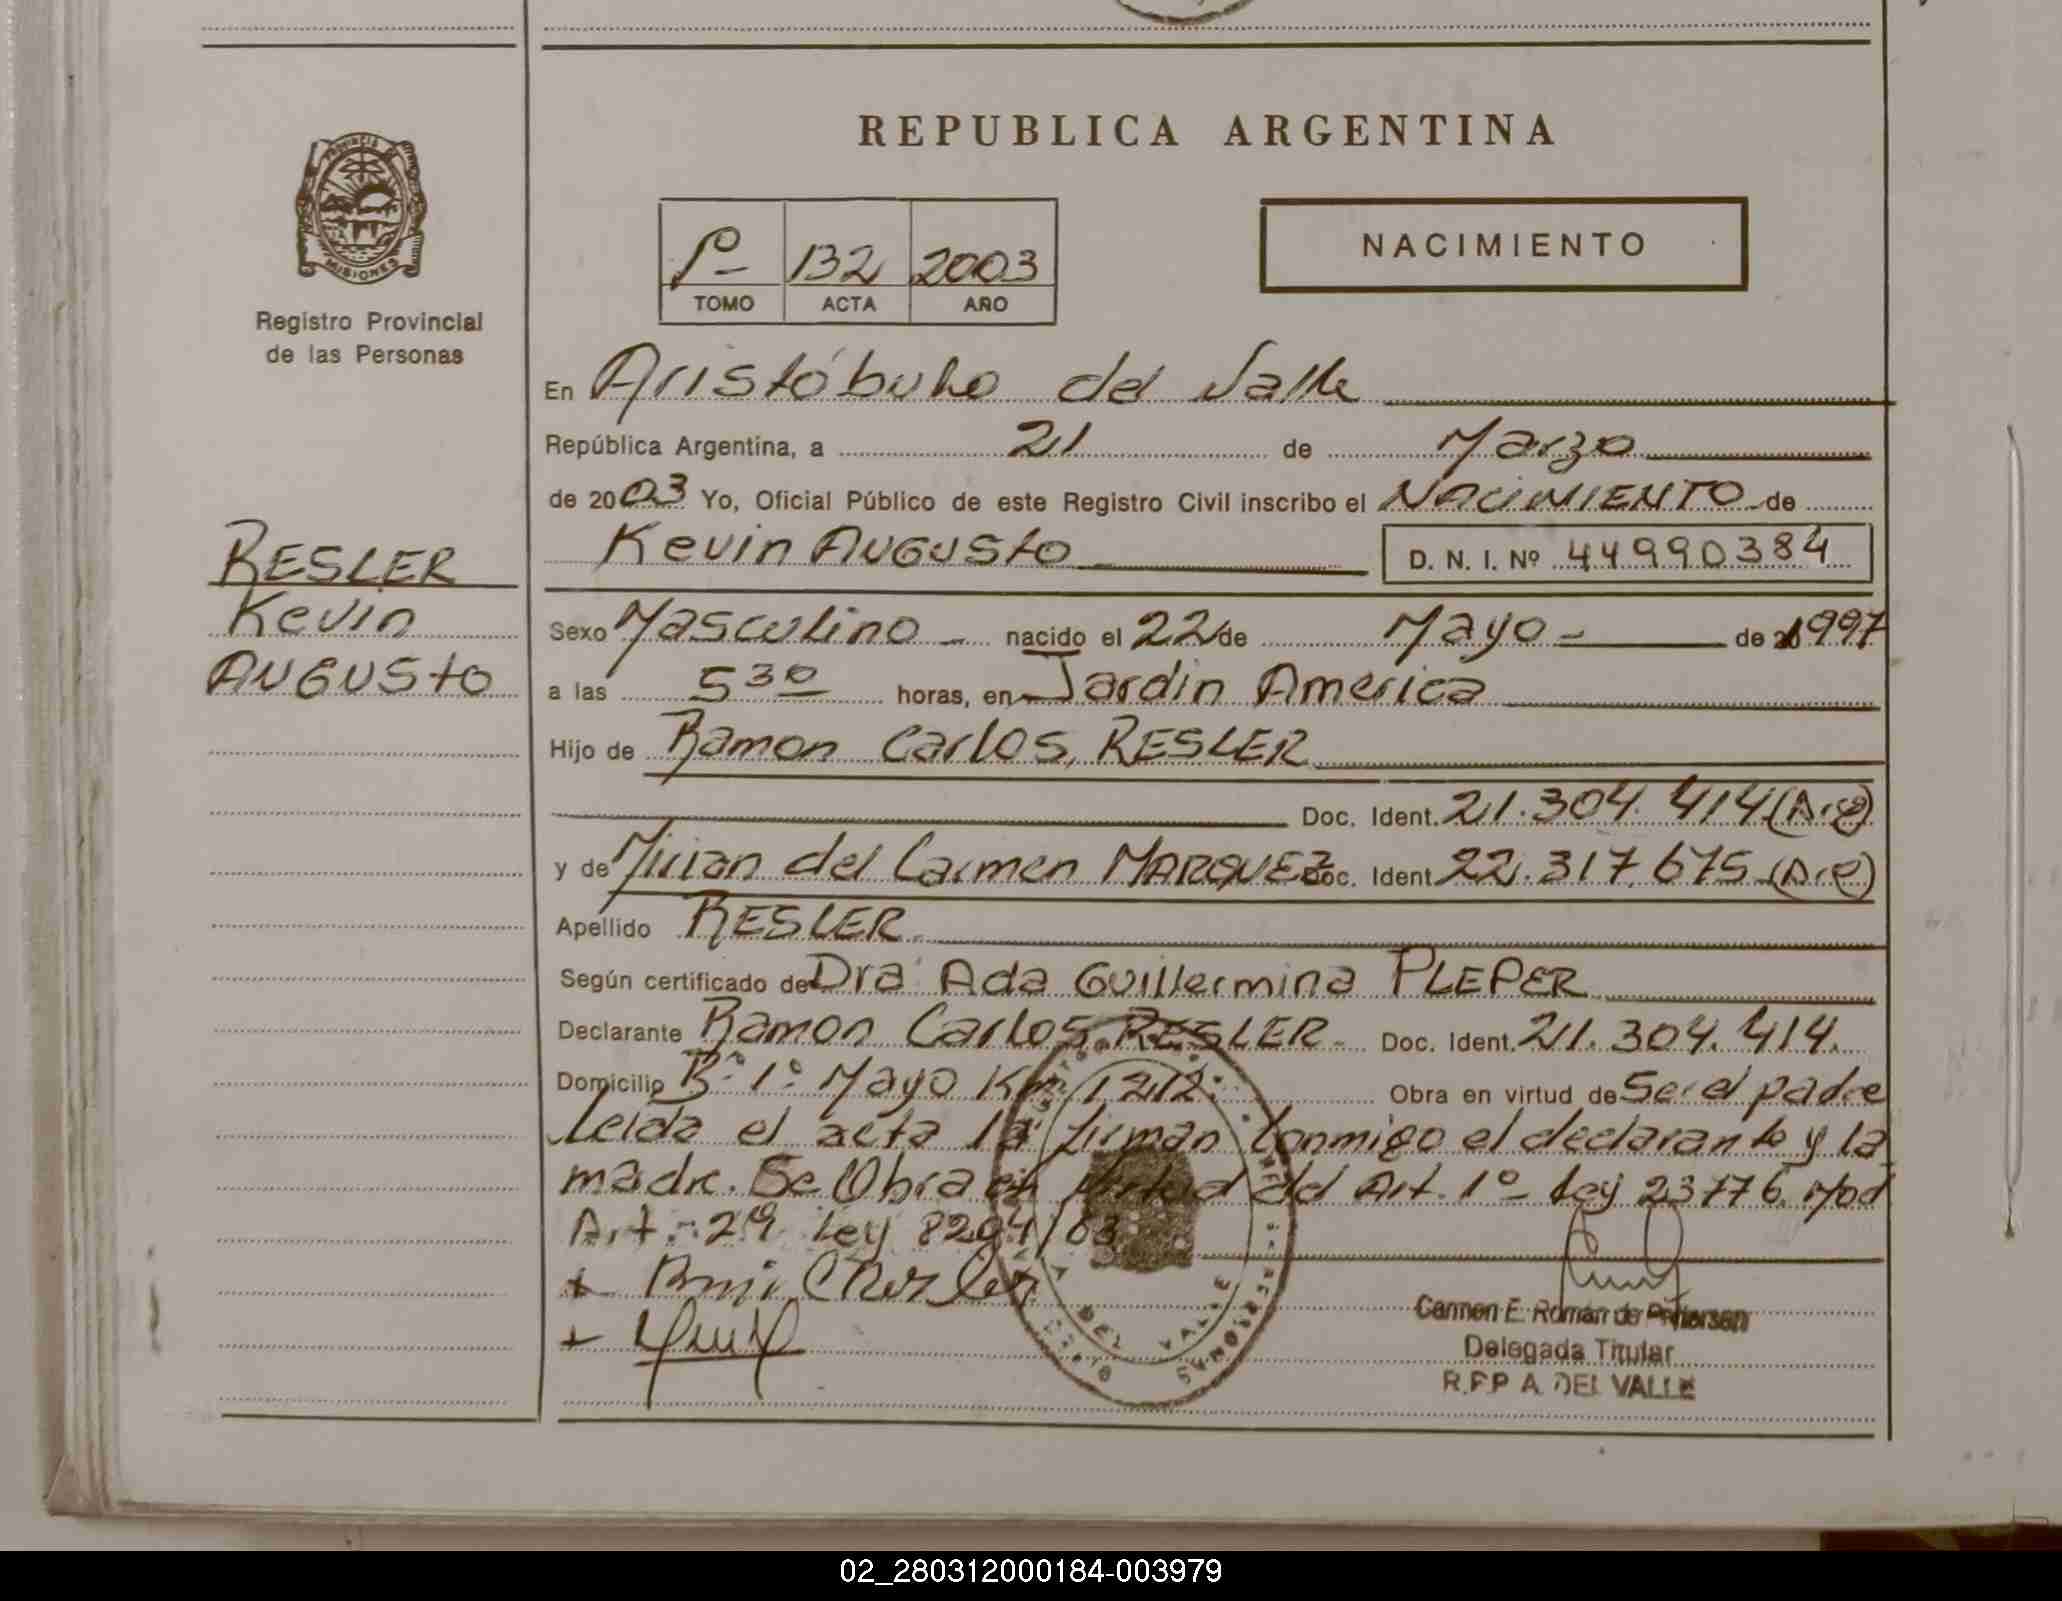 REPUBLICA ARGENTINA
PROVINCIA DE
MISIONES
Registro Provincial
de las Personas
1º- 132 2003
TOMO ACTA AÑO
NACIMIENTO
En Aristóbulo del Valle
República Argentina, a 21 de Marzo
de 2003 Yo, Oficial Público de este Registro Civil inscribo el NACIMIENTO de
Kevin AUGUSto D. N. I. Nº 44990384
RESLER
Kevin
AUGUSto
Sexo Masculino - nacido el 22 de Mayo - de 1997
a las 5 30 horas, en Jardin America
Hijo de Ramon Carlos, RESLER
Doc. Ident. 21.304.414 (Arg)
y de Mirian del Carmen MARQUEZ Doc. Ident 22.317.675 (Arg)
Apellido RESLER
Según certificado de Dra Ada Guillermina PLEPER
Declarante Ramon Carlos RESLER - Doc. Ident. 21.304.414.
Domicilio Bº 1º Mayo Km 1212. Obra en virtud de Ser el padre
Leida el acta la firman Conmigo el declarante y la
madre. Se Obra en virtud del Art. 1º- Ley 23776 Mod
Art. 29 Ley 8204/63
DEL VALLE
PERSONAS
Carmen E. Román de Pedersen
Delegada Titular
R.P.P A. DEL VALLE
02_280312000184-003979